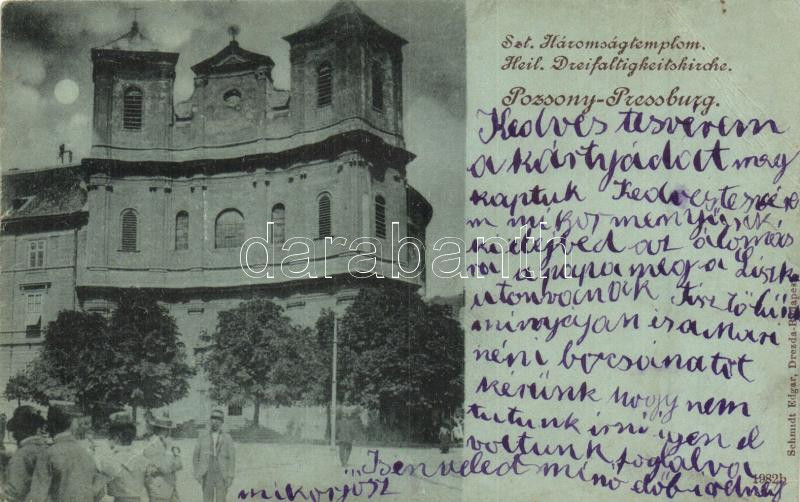 Szt. Háromságtemplom.
Heil. Dreifaltigkeitskirche.
Pozsony-Pressburg.
Kedves tesverem
a kártyádat meg
kaptuk Kedves tesvére
m mikor mennyünk
ki dejöved az álomás
ra a papa meg a Liszka
utonvanak Tisztölünk
minyájan is a Mari
néni bocsánatot
kérünk hogy nem
tutunk irni igen el
voltunk foglalva
Isen veled minő előb
mikor jösz
darabanth
Schmidt Edgar, Drezda-Budapest
1982b